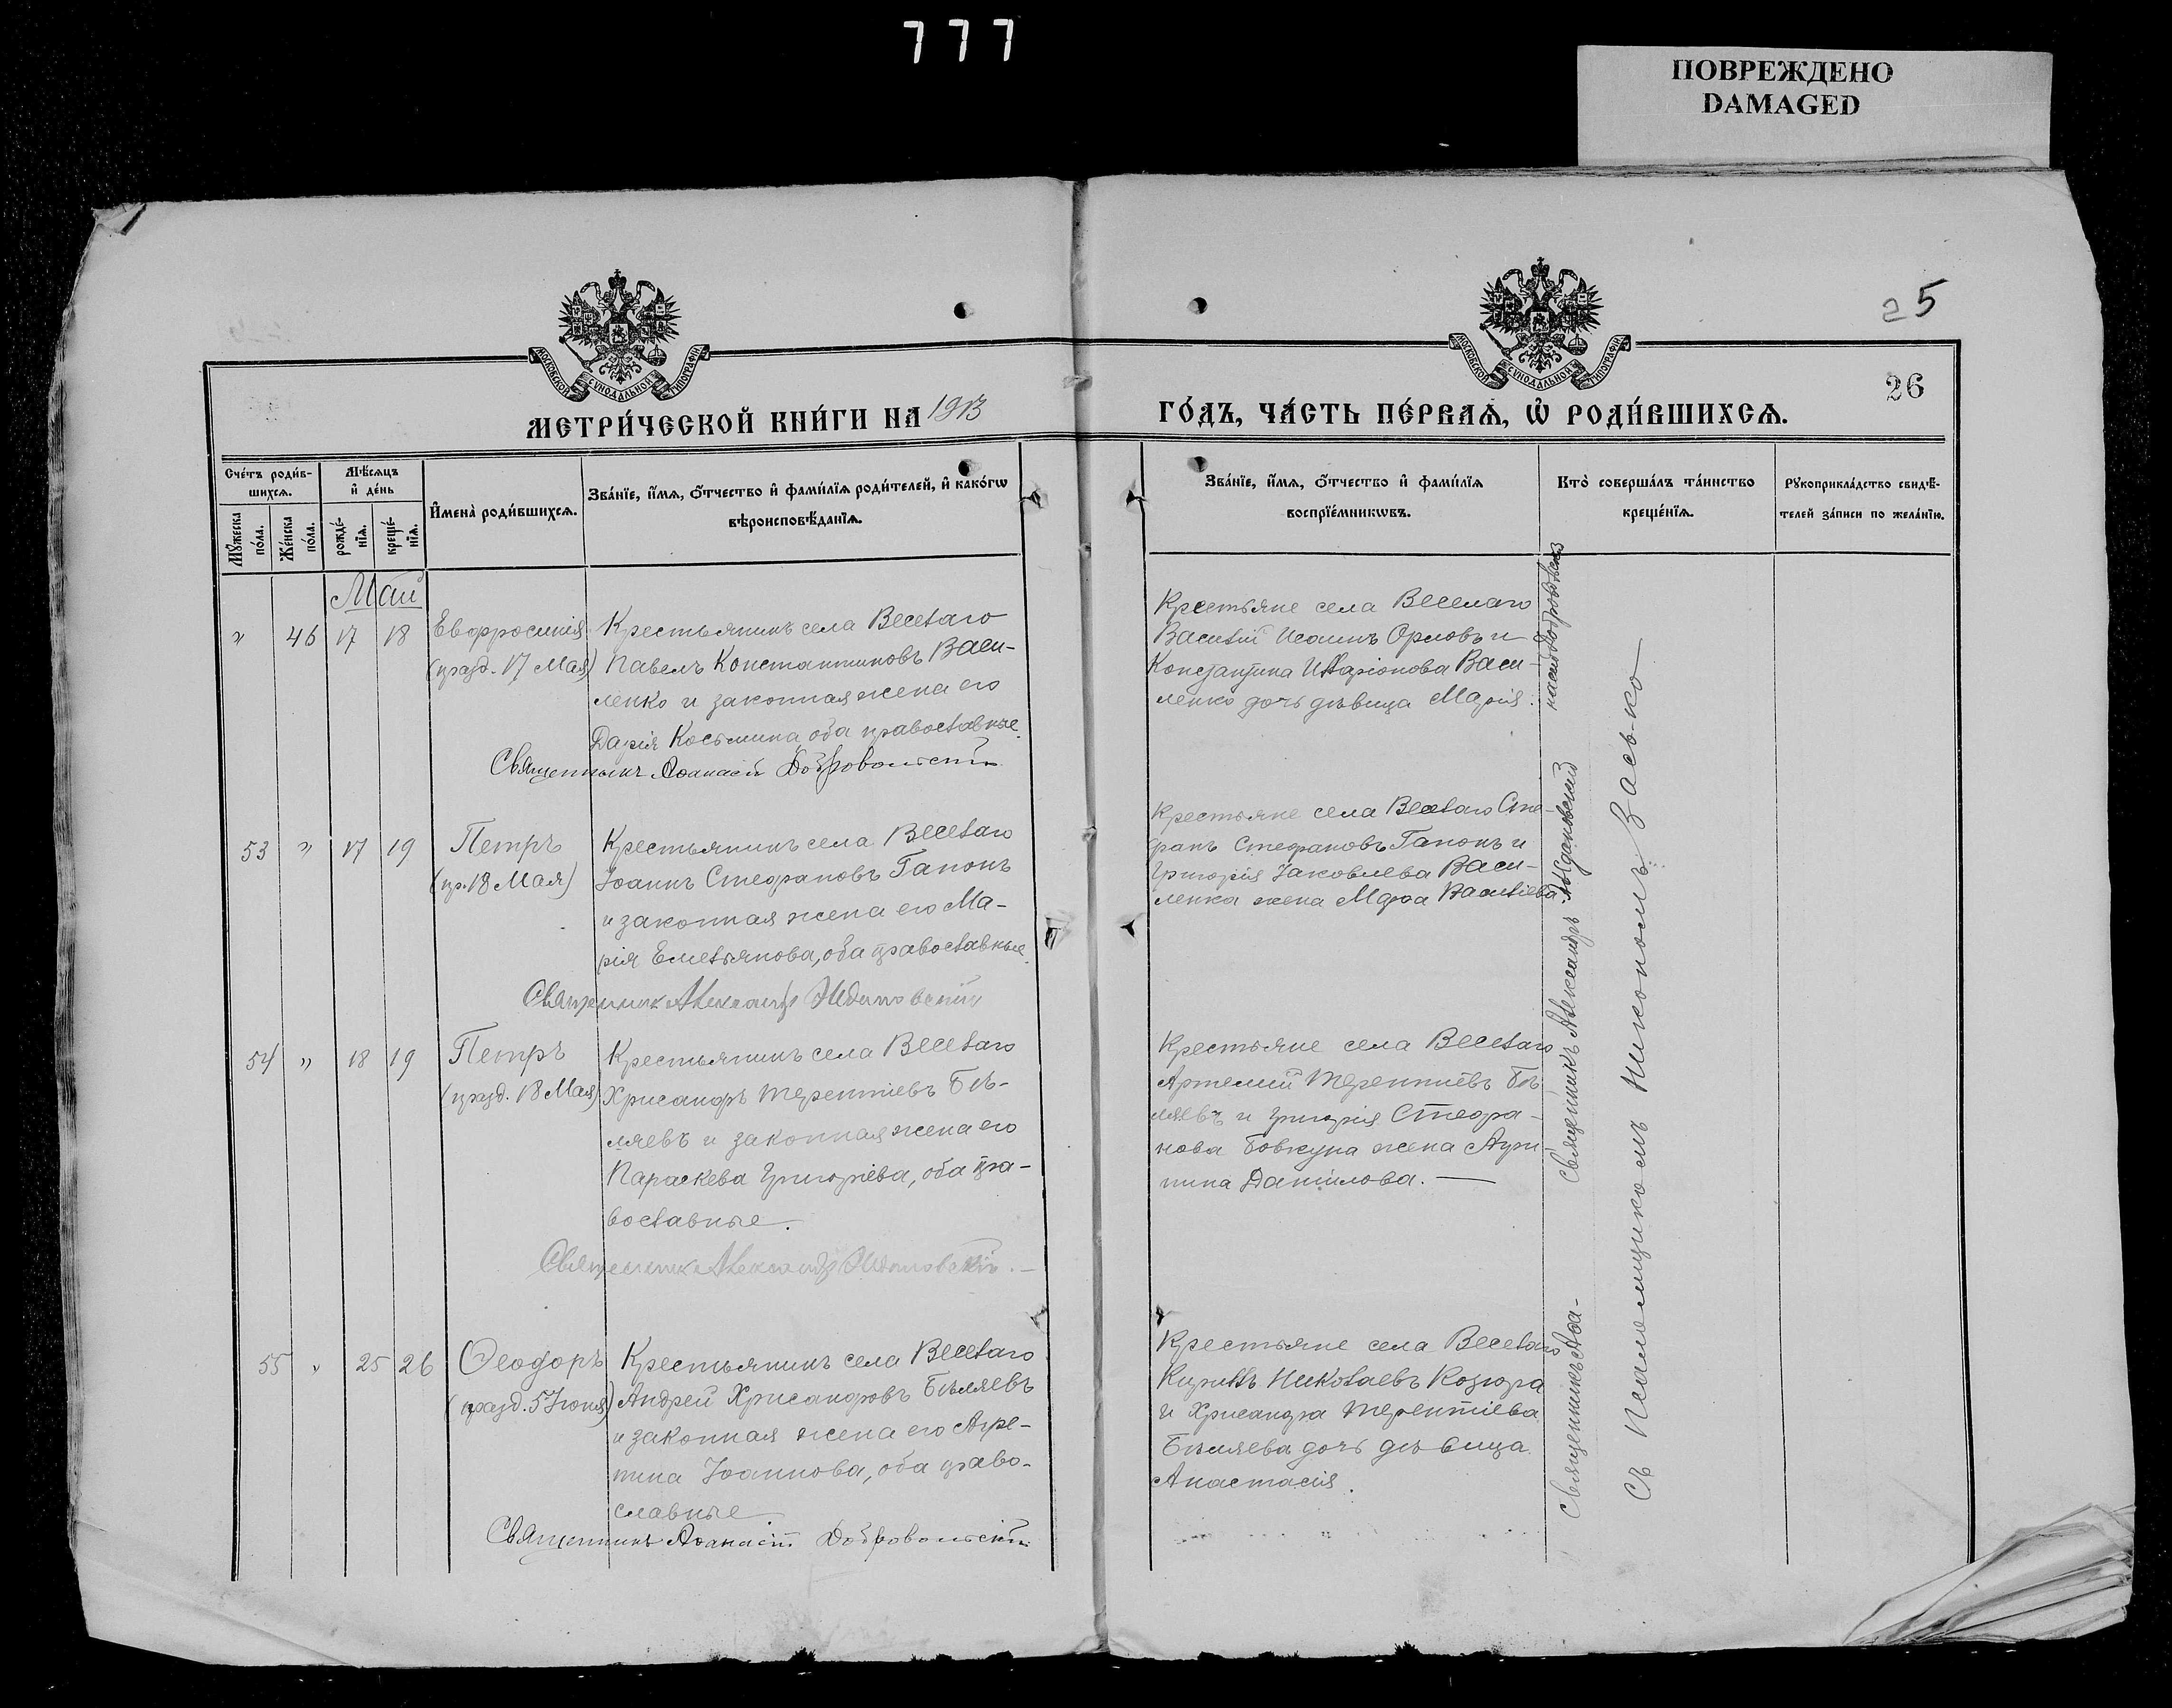 777
ПОВРЕЖДЕНО
DAMAGED
25
26
МОСКОВСКОЙ СѴНОДАЛЬНОЙ ТИПОГРАФІИ
МОСКОВСКОЙ СѴНОДАЛЬНОЙ ТИПОГРАФІИ
МЕТРИ́ЧЕСКОЙ КНИ́ГИ НА 1913
ГО́ДЪ, ЧА́СТЬ ПЕ́РВАѦ, Ѡ҆ РОДИ́ВШИХСѦ.
Сче́тъ роди́в-
шихсѧ.
Мꙋ́жеска
по́ла.
Же́нска
по́ла.
Мѣ́сѧцъ
и҆ де́нь
рожде́-
нїѧ.
креще́-
нїѧ.
И҆мена̀ роди́вшихсѧ.
Зва́нїе, и҆́мѧ, ѻ҆́тчество и҆ фами́лїѧ роди́телей, и҆ како́гѡ
вѣроисповѣ́данїѧ.
Зва́нїе, и҆́мѧ, ѻ҆́тчество и҆ фами́лїѧ
воспрїе́мникѡвъ.
Кто̀ соверша́лъ та́инство
креще́нїѧ.
Рꙋкоприкла́дство свидѣ́-
телей за́писи по жела́нїю.
Май
" 46 17 18
Евфросинія
(празд. 17 Мая)
Крестьянинъ села Веселаго
Павелъ Константиновъ Васи-
ленко и законная жена его
Дарія Косьмина, оба православные.
Священникъ Аѳанасій Добровольскій
Крестьяне села Веселаго
Василій Иоаннъ Орловъ и
Константина Иларіонова Васи-
ленко дочь дѣвица Марія.
53 " 17 19
Петръ
(пр. 18 Мая)
Крестьянинъ села Веселаго
Іоаннъ Стефановъ Гапонъ
и законная жена его Ма-
рія Емельянова, оба православные.
Священникъ Александръ Ждановскій
Крестьяне села Веселаго Сте-
фанъ Стефановъ Гапонъ и
Григорія Іаковлева Васи-
ленка жена Марѳа Василіева.
54 " 18 19
Петръ
(празд. 18 Мая)
Крестьянинъ села Веселаго
Хрисанфъ Терентіевъ Бѣ-
ляевъ и законная жена его
Параскева Григоріева, оба пра-
вославные.
Священникъ Александръ Ждановскій. —
Крестьяне села Веселаго
Артемій Терентіевъ Бѣ
ляевъ и Григорія Стефа-
нова Бовкуна жена Агри
пина Даніилова. —
55 " 25 26
Ѳеодоръ
(празд. 5 Іюня)
Крестьянинъ села Веселаго
Андрей Хрисанфовъ Бѣляевъ
и законная жена его Агре-
пина Іоаннова, оба право-
славные
Священникъ Аѳанасій Добровольскій
Крестьяне села Веселаго
Кириллъ Николаевъ Козюра
и Хрисанфа Терентіева
Бѣляева дочь дѣвица
Анастасія.
Священникъ Аѳа-
Священникъ Александръ Ждановскій
насій Добровольскій
Съ Псаломщикомъ Никономъ Засько —